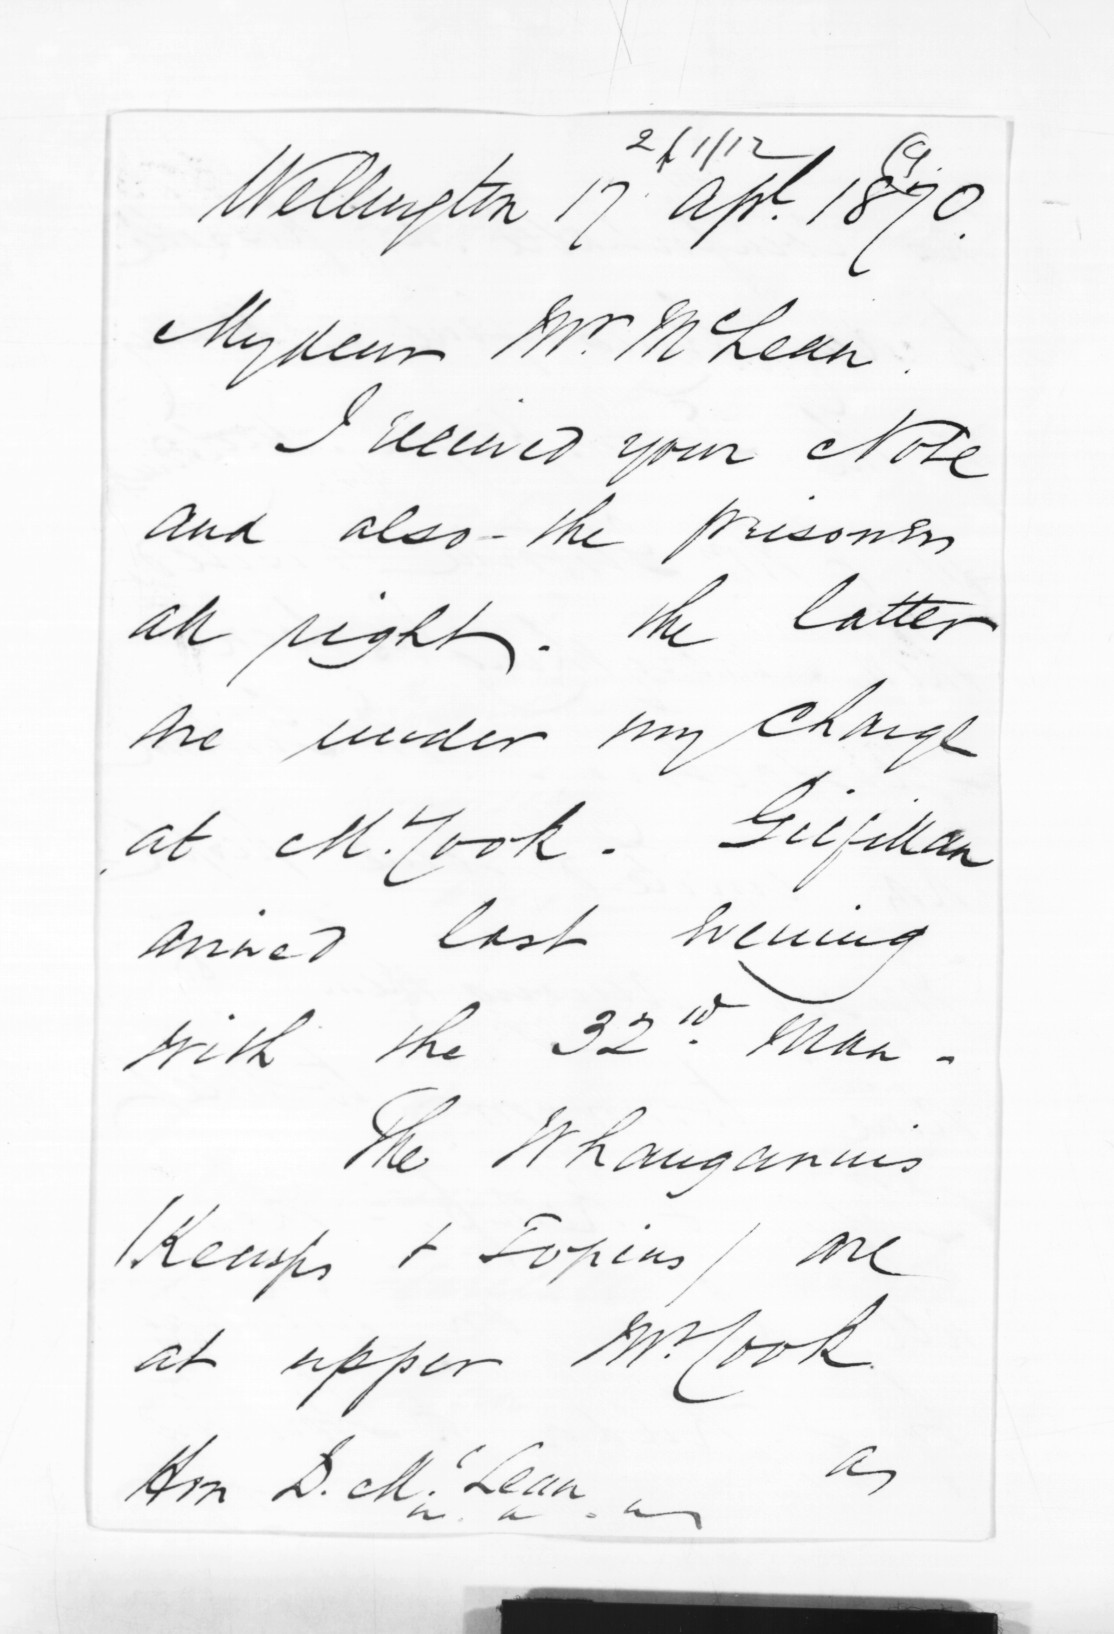 Wellington 17 Apl. 1870.
My dear Mr. McLean.
I received your Note
and also - the prisoners
all right. the latter
are under my charge
at Mt. Cook. Gilfillan
arrived last evening
with the 32nd. Man -
The Whanganuis
(Kemps + Topias) are
at upper Mt. Cook.
Hon D. McLean as